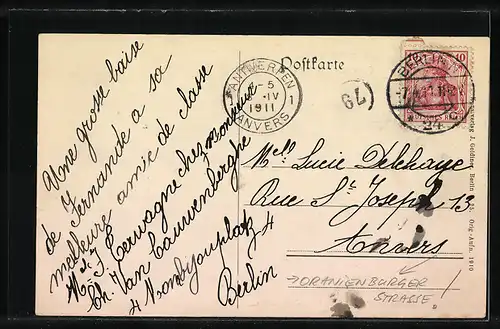 Une grosse baise
de Fernande a sa
meilleure amie de classe
Mlle F. Gerwagne chez Monsieur
Ch. Van Cauwenberghe
4 Monbijouplatz 4
Berlin
Postkarte
ANTWERPEN
5
IV
1911
1
ANVERS
79
BERLIN
24
10
Mlle Lucie Delehaye
Rue St Joseph 13
Anvers
ORANIENBURGER
STRASSE
Kunstverlag J. Goldiner, Berlin C. 25. Orig.-Aufn. 1910